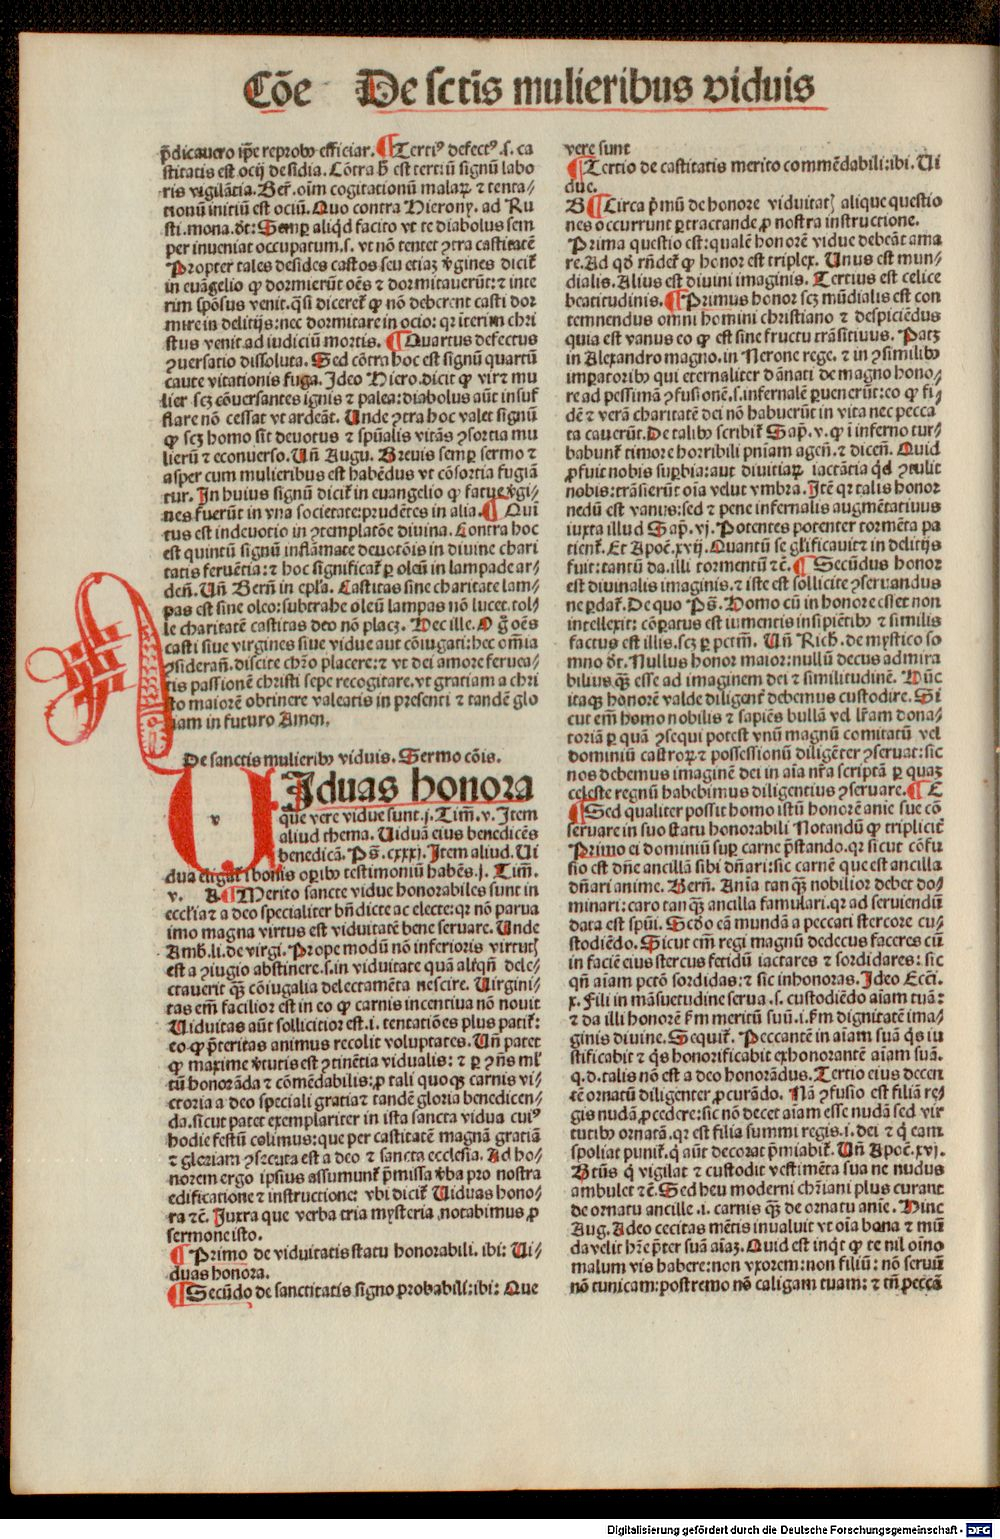 Cõe De sctĩs mulieribus viduis
p̃dicauero ip̃e reprobꝰ efficiar. ¶ Tertiꝰ defectꝰ .s. ca
stitatis est ocij desidia. Cõtra h̃ est tertiũ signũ labo
ris vigilãtia. Ber̃. oĩm cogitationũ malaꝝ ⁊ tenta⸗
tionũ initiũ est ociũ. Quo contra Hierony. ad Ru
sti. mona. dt̃: Semp̱ aliq̃d facito vt te diabolus sem
per inueniat occupatum .s. vt nõ tentet ꝯtra castitatẽ
Propter tales desides castos seu etiaꝫ v̓gines dicit̃
in euãgelio ꝙ dormierũt oẽs ⁊ dormitauerũt: ⁊ inte
rim spõsus venit. q̃si diceret̃ ꝙ nõ deberent casti dor
mire in delitijs: nec dormitare in ocio: qꝛ iterim chri
stus venit ad iudiciũ mortis. ¶ Quartus defectus
ꝯuersatio dissoluta. Sed cõtra hoc est signũ quartũ
caute vitationis fuga. Ideo Hiero. dicit ꝙ vir ⁊ mu
lier scꝫ cõuersantes ignis ⁊ palea: diabolus aũt insuf
flare nõ cessat vt ardeãt. Unde ꝯtra hoc valet signũ
ꝙ scꝫ homo sit deuotus ⁊ spũalis vitãs ꝯsortia mu
lierũ ⁊ econuerso. Uñ Augu. Breuis semp̱ sermo ⁊
asper cum mulieribus est habẽdus vt cõsortia fugiã
tur. In huius signũ dicit̃ in euangelio ꝙ fatue v̓gi⸗
nes fuerũt in vna societate: prudẽtes in alia. ¶ Quĩ
tus est indeuotio in ꝯtemplatõe diuina. Contra hoc
est quintũ signũ inflãmate deuotõis in diuine chari
tatis feruẽtia: ⁊ hoc significat̃ ꝑ oleũ in lampade ar⸗
dẽti. Uñ Berñ in epl̃a. Castitas sine charitate lam⸗
pas est sine oleo: subtrahe oleũ lampas nõ lucet. tol⸗
le charitatẽ castitas deo nõ placꝫ. Hec ille. O g̃ oẽs
casti siue virgines siue vidue aut cõiugati: hec om̃ia
ꝯsiderañ. discite chr̃o placere: ⁊ vt dei amore feruea⸗
tis passionẽ christi sepe recogitare. vt gratiam a chri
sto maiorẽ obtinere valeatis in presenti ⁊ tandẽ glo
riam in futuro Amen.
De sanctis mulieribꝰ viduis. Sermo cõis.
UIduas honora
v
que vere vidue sunt. j. Tim̃. v. Item
aliud thema. Uiduã eius benedicẽs
benedicã. Ps̃. cxxxj. Item aliud. Ui
dua eligat̃ i bonis oꝑibꝰ testimoniũ habẽs. j. Tim̃.
v. A ¶ Merito sancte vidue honorabiles sunt in
eccl̃ia ⁊ a deo specialiter bñdicte ac electe: qꝛ nõ parua
imo magna virtus est viduitatẽ bene seruare. Unde
Amb. li. de virgi. Prope modũ nõ inferioris virtutꝫ
est a ꝯiugio abstinere .s. in viduitate quã aliqñ dele⸗
ctauerit qꝫ̃ cõiugalia delectamẽta nescire. Uirgini⸗
tas em̃ facilior est in eo ꝙ carnis incentiua nõ nouit
Uiduitas aũt sollicitior est. i. tentatiões plus patit̃:
eo ꝙ p̃teritas animus recolit voluptates. Uñ patet
ꝙ maxime v̓tutis est ꝯtinẽtia vidualis: ⁊ ꝑ ꝯñs ml̓
tũ honorãda ⁊ cõmẽdabilis: ꝓ tali quoqꝫ carnis vi⸗
ctoria a deo speciali gratia ⁊ tandẽ gloria benedicen⸗
da. sicut patet exemplariter in ista sancta vidua cuiꝰ
hodie festũ colimus: que per castitatẽ magnã gratiã
⁊ gloriam ꝯsecuta est a deo ⁊ sancta ecclesia. Ad ho⸗
norem ergo ipsius assumunt̃ p̃missa v̓ba pro nostra
edificatione ⁊ instructione: vbi dicit̃ Uiduas hono⸗
ra ⁊c̃. Juxta que verba tria mysteria notabimus ꝓ
sermone isto.
¶ Primo de viduitatis statu honorabili. ibi: Ui⸗
duas honora.
¶ Secũdo de sanctitatis signo probabili: ibi: Que
vere sunt
¶ Tertio de castitatis merito commẽdabili: ibi. Ui
due.
B ¶ Circa p̃mũ de honore viduitatꝫ alique questio
nes occurrunt ꝑtractande ꝓ nostra instructione.
Prima questio est: qualẽ honorẽ vidue debeãt ama
re. Ad qd̃ rñdet̃ ꝙ honor est triplex. Unus est mun⸗
dialis. Alius est diuini imaginis. Tertius est celice
beatitudinis. ¶ Primus honor scꝫ mũdialis est con
temnendus omni homini christiano ⁊ despiciẽdus
quia est vanus eo ꝙ est sine fructu trãsitiuus. Patꝫ
in Alexandro magno. in Nerone rege. ⁊ in ꝯsimilibꝰ
imꝑatoribꝰ qui eternaliter dãnati de magno hono⸗
re ad pessimã ꝯfusionẽ .s. infernalẽ ꝑuenerũt: eo ꝙ fi⸗
dẽ ⁊ verã charitatẽ dei nõ habuerũt in vita nec pecca⸗
ta cauerũt. De talibꝰ scribit̃ Sap̃. v. ꝙ i inferno tur⸗
babunt̃ timore horribili pñiam ageñ. ⁊ diceñ. Quid
ꝓfuit nobis suꝑbia: aut diuitiaꝝ iactãtia q̃d ꝯtulit
nobis: trãsierũt oĩa velut vmbra. Itẽ qꝛ talis honor
nedũ est vanus: sed ⁊ pene infernalis augmẽtatiuus
iuxta illud Sap̃. vj. Potentes potenter tormẽta pa
tient̃. Et Apoc̃. xviij. Quantũ se gl̃ificauit ⁊ in delitijs
fuit: tantũ da. illi tormentũ ⁊c̃. ¶ Secũdus honor
est diuinalis imaginis. ⁊ iste est sollicite ꝯseruandus
ne ꝑdat̃. De quo Ps̃. Homo cũ in honore esset non
intellexit: cõꝑatus est iumentis insipiẽtibꝰ ⁊ similis
factus est illis. scꝫ ꝑ pctm̃. Uñ Rich. de mystico so
mno dt̃. Nullus honor maior: nullũ decus admira
bilius. qꝫ̃ esse ad imaginem dei ⁊ similitudinẽ. Nũc
itaqꝫ honorẽ valde diligent̃ debemus custodire. Si
cut em̃ homo nobilis ⁊ sapiẽs bullã vel lr̃am dona⸗
toriã ꝑ quã ꝯsequi potest vnũ magnũ comitatũ vel
dominiũ castroꝝ ⁊ possessionũ diligẽter ꝯseruat: sic
nos debemus imaginẽ dei in aĩa nr̃a scriptã ꝑ quaꝫ
celeste regnũ habebimus diligentius ꝯseruare. ¶ C
¶ Sed qualiter possit homo istũ honorẽ anie sue cõ
seruare in suo statu honorabili Notandũ ꝙ triplicit̃
Primo ei dominiũ suꝑ carne p̃stando. qꝛ sicut cõfu
sio est dñe ancillã sibi dñari: sic carnẽ que est ancilla
dñari anime. Berñ. Anĩa tanqꝫ̃ nobilior debet do⸗
minari: caro tanqꝫ̃ ancilla famulari. qꝛ ad seruiendũ
data est spũi. Scd̃o eã mundã a peccati stercore cu⸗
stodiẽdo. Sicut em̃ regi magnũ dedecus faceres cũ
in faciẽ eius stercus fetidũ iactares ⁊ sordidares: sic
qñ aĩam pctõ sordidas: ⁊ sic inhonoras. Ideo Ecci̓.
x. Fili in mãsuetudine serua .s. custodiẽdo aĩam tuã:
⁊ da illi honorẽ ẜm meritũ suũ. i. ẜm dignitatẽ ima⸗
ginis diuine. Sequit̃. Peccantẽ in aĩam suã q̃s iu
stificabit ⁊ q̃s honorificabit exhonorantẽ aĩam suã.
q. d. talis nõ est a deo honorãdus. Tertio eius decen
tẽ ornatũ diligenter ꝓcurãdo. Nã ꝯfusio est filiã re⸗
gis nudã ꝓcedere: sic nõ decet aĩam esse nudã sed vir
tutibꝰ ornatã. qꝛ est filia summi regis. i. dei ⁊ q̃ eam
spoliat punit̃. q̃ aũt decorat p̃miabit̃. Uñ Apoc̃. xvj.
Btũs q̃ vigilat ⁊ custodit vestimẽta sua ne nudus
ambulet ⁊c̃. Sed heu moderni chr̃iani plus curant
de ornatu ancille .i. carnis qꝫ̃ de ornatu anie. Hinc
Aug. Adeo cecitas mẽtis inualuit vt oĩa bona ⁊ mũ
da velit hr̃e p̃ter suã aĩaꝫ. Quid est inq̃t ꝙ te nil oĩno
malum vis habere: non vxorem: non filiũ: nõ seruũ
nõ tunicam: postremo nõ caligam tuam: ⁊ tñ peccã
Digitalisierung gefördert durch die Deutsche Forschungsgemeinschaft - DFG